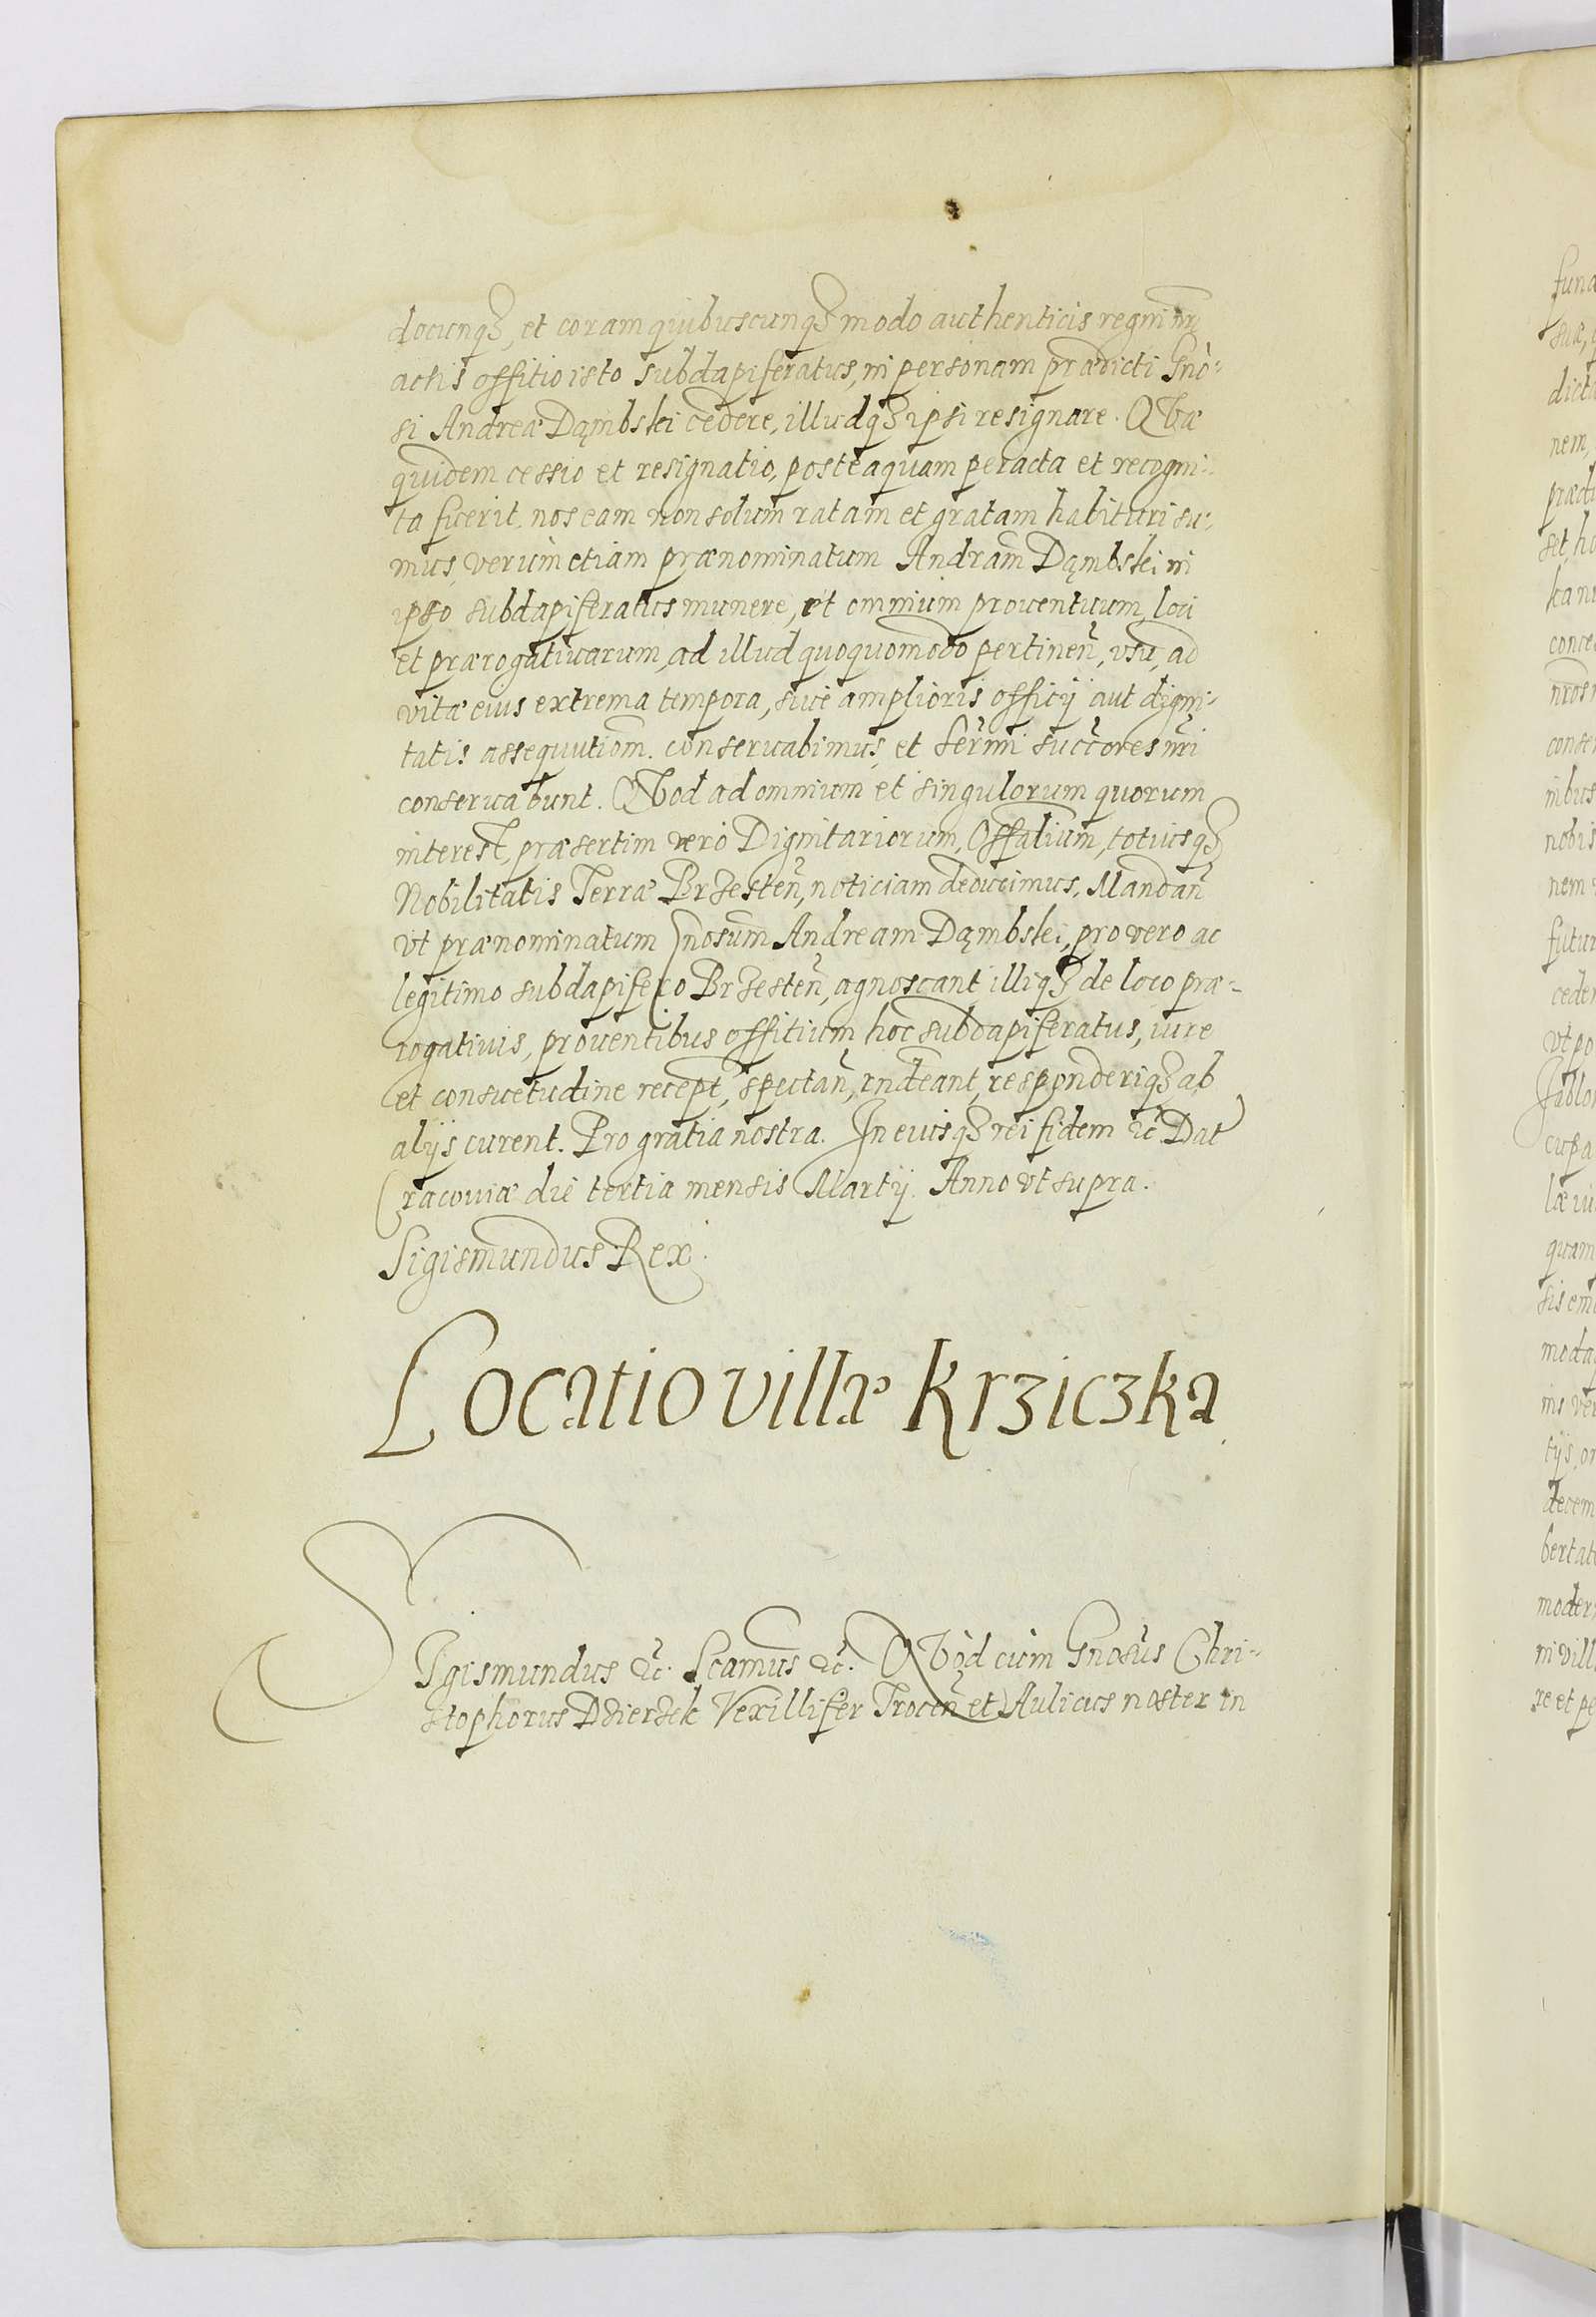 docunqȝ, et coram quibuscunqȝ modo authenticis regni nr̃i
actis offitio isto subdapiferatus, in personam prædicti Gnò-
si Andreæ Dąmbski cedere, illudqȝ ipsi resignare. Quæ
quidem cessio et resignatio, posteaquam peracta et recogni-
ta fuerit, nos eam non solum ratam et gratam habituri su-
mus, verum etiam prænominatum Andrãm Dąmbski in
ipso subdapiferatus munere, et omnium prouentuum, loci
et prærogatiuarum, ad illud quoquomodo pertineñ, vsu, ad
vitæ eius extrema tempora, siue amplioris officij aut digni-
tatis assequutiom̃. conseruabimus, et Serm̃i succ̃ores nr̃i
conseruabunt. Quod ad omnium et singulorum quorum
interest, præsertim vero Dignitariorum, Offalium, totiusqȝ
Nobilitatis Terræ Brzesteñ, noticiam deducimus, Mandañ
vt prænominatum Gnosum Andream Dąmbski, pro vero ac
legitimo subdapifero Brzesteñ, agnoscant illiqȝ de loco præ-
rogatiuis, prouentibus offitium hoc subdapiferatus, iure
et consuetudine recept, spectañ, rndeant, responderiqȝ ab
alijs curent. Pro gratia nostra. In euisqȝ rei fidem &c̃ Dat
Cracouiæ die tertia mensis Martij. Anno vt supra.
Sigismundus Rex.
Locatio villæ Krziczka
SIgismundus &c̃. Scamus &c̃. Quòd cùm Gnosus Chri-
stophorus Dzierzek Vexillifer Troceñ et Aulicus noster in